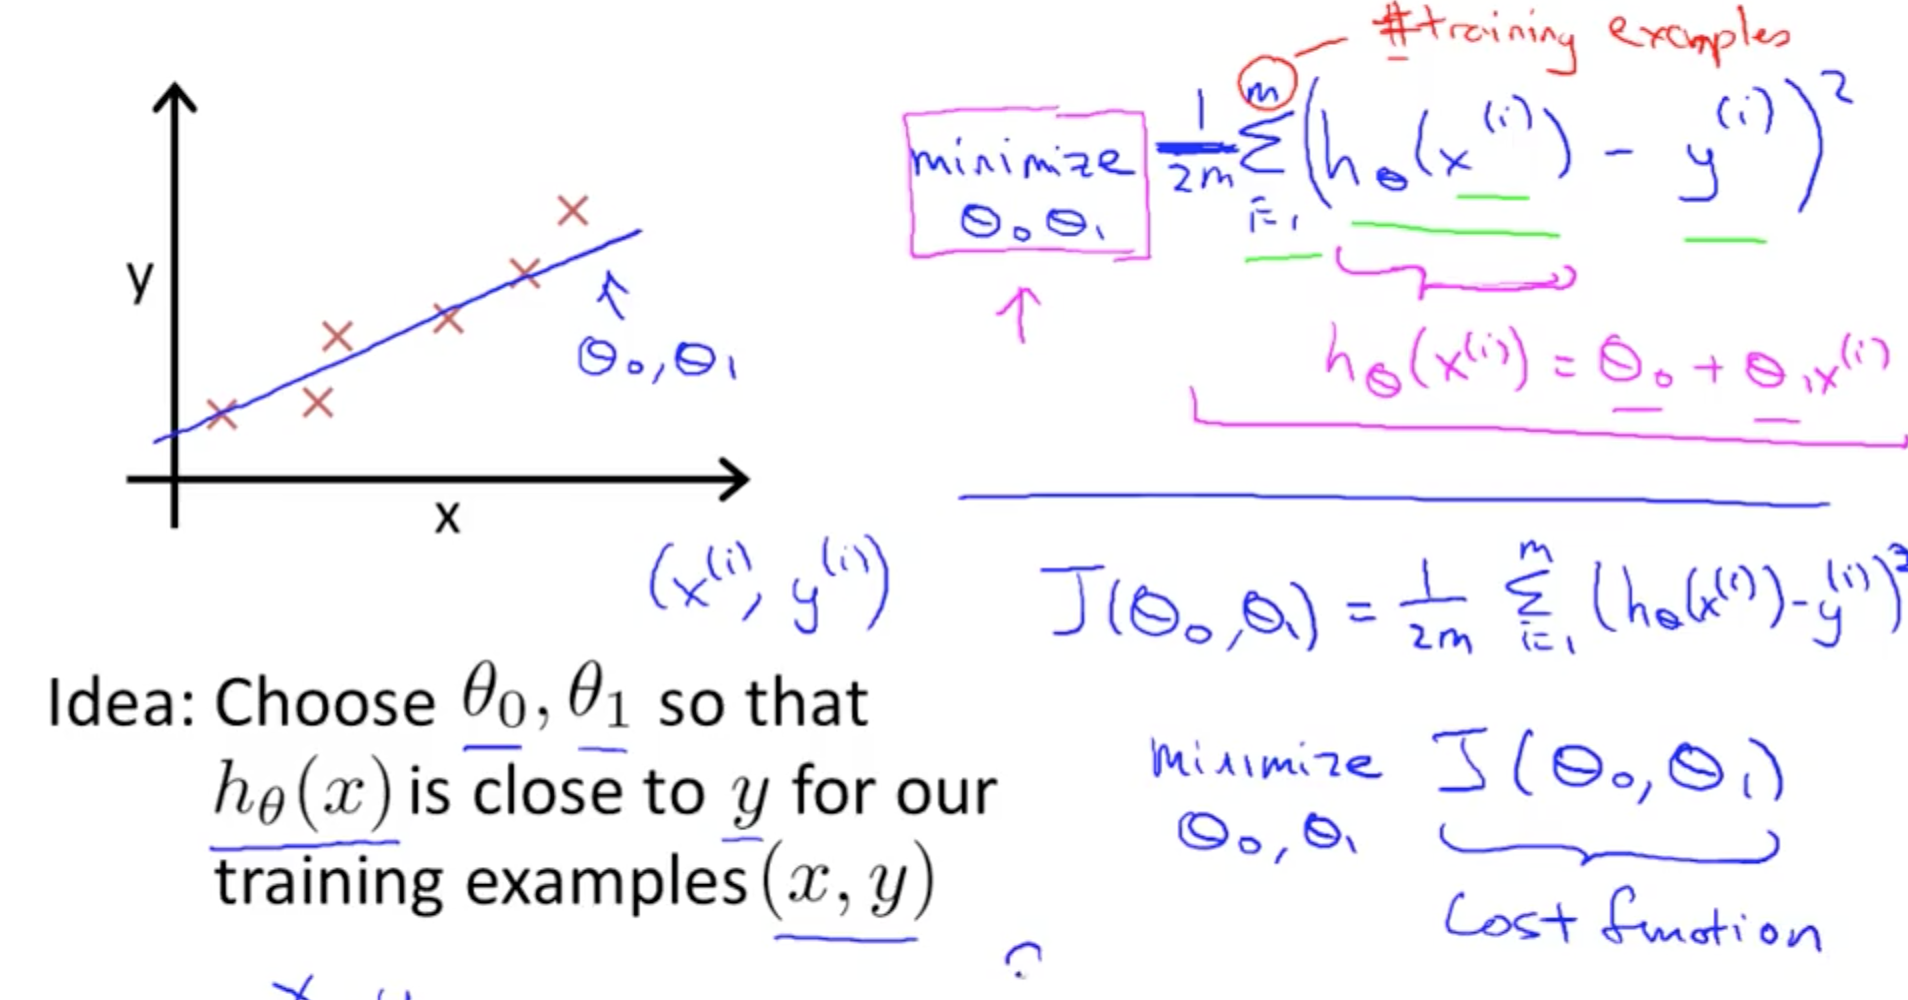 y
x
θ₀, θ₁
(x⁽ⁱ⁾, y⁽ⁱ⁾)
Idea: Choose θ₀, θ₁ so that
h_θ(x) is close to y for our
training examples (x, y)
#training examples
minimize
θ₀ θ₁
1/2m Σ_{i=1}^{m} (h_θ(x⁽ⁱ⁾) - y⁽ⁱ⁾)²
h_θ(x⁽ⁱ⁾) = θ₀ + θ₁x⁽ⁱ⁾
J(θ₀, θ₁) = 1/2m Σ_{i=1}^{m} (h_θ(x⁽ⁱ⁾) - y⁽ⁱ⁾)²
minimize J(θ₀, θ₁)
θ₀, θ₁
Cost function